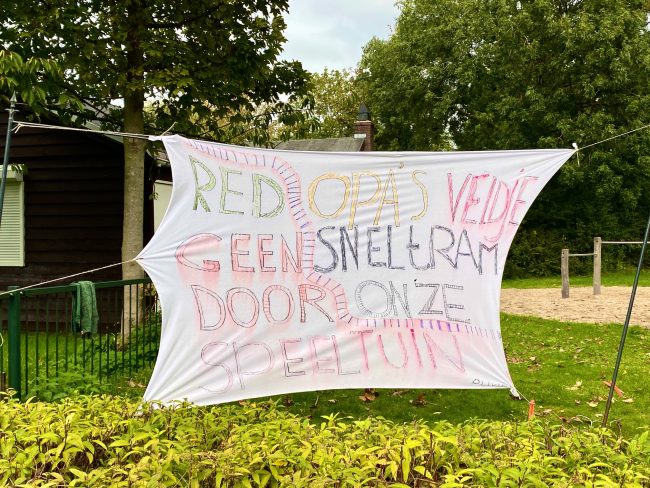 RED OPA'S VELDJE
GEEN SNELtRAM
DOOR ONZE
SPEELTUIN